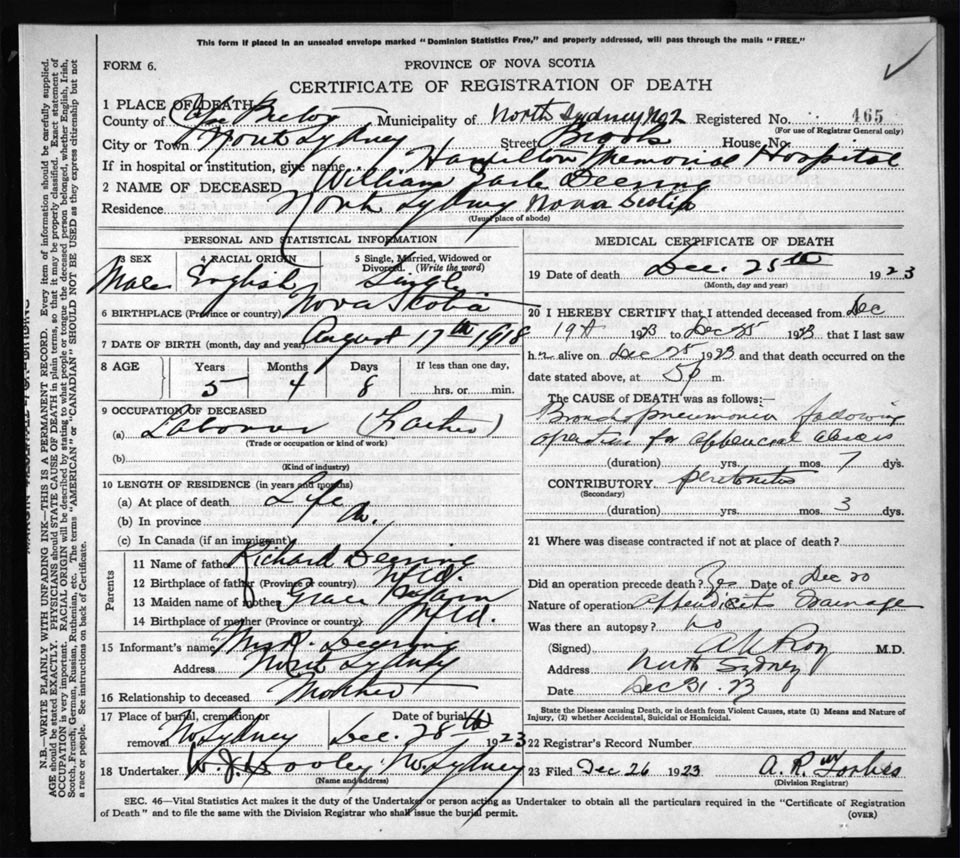 This form if placed in an unsealed envelope marked "Dominion Statistics Free," and properly addressed, will pass through the mails "FREE."
FORM 6.
PROVINCE OF NOVA SCOTIA
CERTIFICATE OF REGISTRATION OF DEATH
1 PLACE OF DEATH
County of Cape Breton Municipality of North Sydney No 2 Registered No. 465
(For use of Registrar General only)
City or Town North Sydney Street Brooks House No.
If in hospital or institution, give name Hamilton Memorial Hospital
2 NAME OF DECEASED William Earle Deering
Residence North Sydney Nova Scotia
(Usual place of abode)
PERSONAL AND STATISTICAL INFORMATION
3 SEX 4 RACIAL ORIGIN 5 Single, Married, Widowed or Divorced. (Write the word)
Male English Single
6 BIRTHPLACE (Province or country) Nova Scotia
7 DATE OF BIRTH (month, day and year) August 17th 1918
8 AGE Years Months Days If less than one day,
5 4 8 hrs. or min.
9 OCCUPATION OF DECEASED
(a) Laborer (Father)
(Trade or occupation or kind of work)
(b)
(Kind of industry)
10 LENGTH OF RESIDENCE (in years and months)
(a) At place of death Life
(b) In province
(c) In Canada (if an immigrant)
Parents
11 Name of father Richard Deering
12 Birthplace of father (Province or country) Nfld.
13 Maiden name of mother Grace
14 Birthplace of mother (Province or country) Nfld.
15 Informant's name Mrs R. Deering
Address North Sydney
16 Relationship to deceased Mother
17 Place of burial, cremation or removal No Sydney Date of burial Dec. 28th 1923
18 Undertaker W. J. Dooley No. Sydney
(Name and address)
MEDICAL CERTIFICATE OF DEATH
19 Date of death Dec. 25th 1923
(Month, day and year)
20 I HEREBY CERTIFY that I attended deceased from Dec
19th 1923 to Dec 25 1923 that I last saw
him alive on Dec 25 1923 and that death occurred on
date stated above, at 5 p m.
The CAUSE of DEATH was as follows:—
Bronchopneumonia following
operation for appendicial abscess
(duration) yrs. mos. 7 dys.
CONTRIBUTORY peritonitis
(Secondary)
(duration) yrs. mos. 3 dys.
21 Where was disease contracted if not at place of death?
Did an operation precede death? Yes Date of Dec 20
Nature of operation appendicitis drainage
Was there an autopsy? no
(Signed) A L Roy M.D.
Address North Sydney
Date Dec 31. 23
State the Disease causing Death, or in death from Violent Causes, state (1) Means and Nature of
Injury, (2) whether Accidental, Suicidal or Homicidal.
22 Registrar's Record Number
23 Filed Dec 26 1923 A. R. Forbes
(Division Registrar)
SEC. 46—Vital Statistics Act makes it the duty of the Undertaker or person acting as Undertaker to obtain all the particulars required in the "Certificate of Registration
of Death" and to file the same with the Division Registrar who shall issue the burial permit.
(OVER)
N.B.—WRITE PLAINLY WITH UNFADING INK—THIS IS A PERMANENT RECORD. Every item of information should be carefully supplied.
AGE should be stated EXACTLY. PHYSICIANS should STATE CAUSE OF DEATH in plain terms, so that it may be properly classified. Exact statement of
OCCUPATION is very important. RACIAL ORIGIN will be described by stating to what people or tongue the deceased person belonged, whether English, Irish,
Scotch, French, German, Russian, Ruthenian, etc. The terms "AMERICAN" or "CANADIAN" SHOULD NOT BE USED as they express citizenship but not
a race or people. See instructions on back of Certificate.